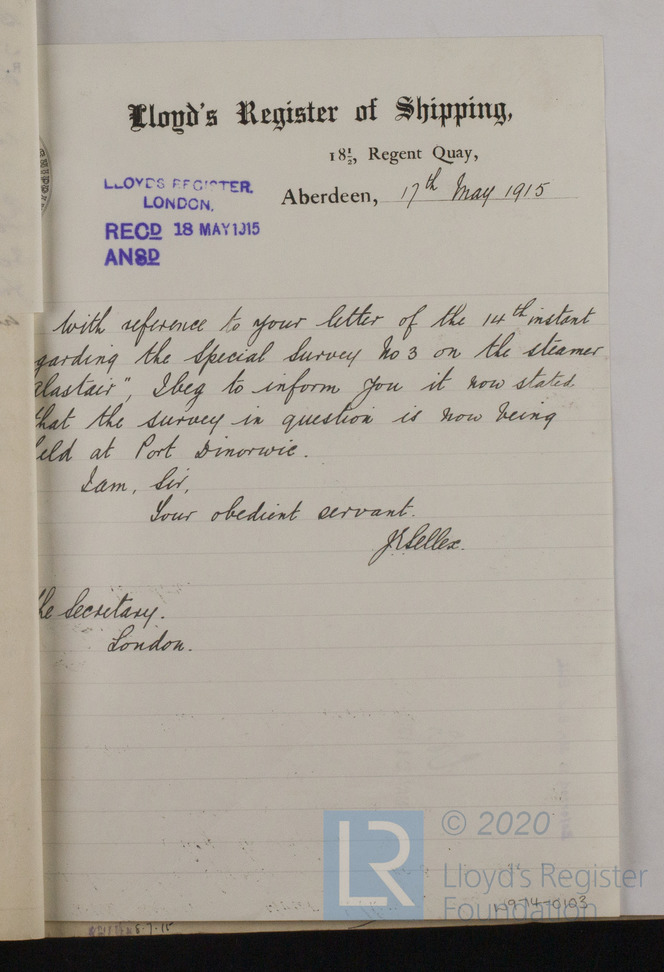 Lloyd's Register of Shipping,
18½, Regent Quay,
Aberdeen, 17th May 1915
LLOYD'S REGISTER.
LONDON.
RECD 18 MAY 1915
ANSD
With reference to your letter of the 14th instant
garding the Special Survey No 3 on the steamer
alastair", I beg to inform you it now stated
that the survey in question is now being
eld at Port Dinorwic.
I am, Sir,
Your obedient servant.
he Secretary.
London.
© 2020
LR
Lloyd's Register
Foundation